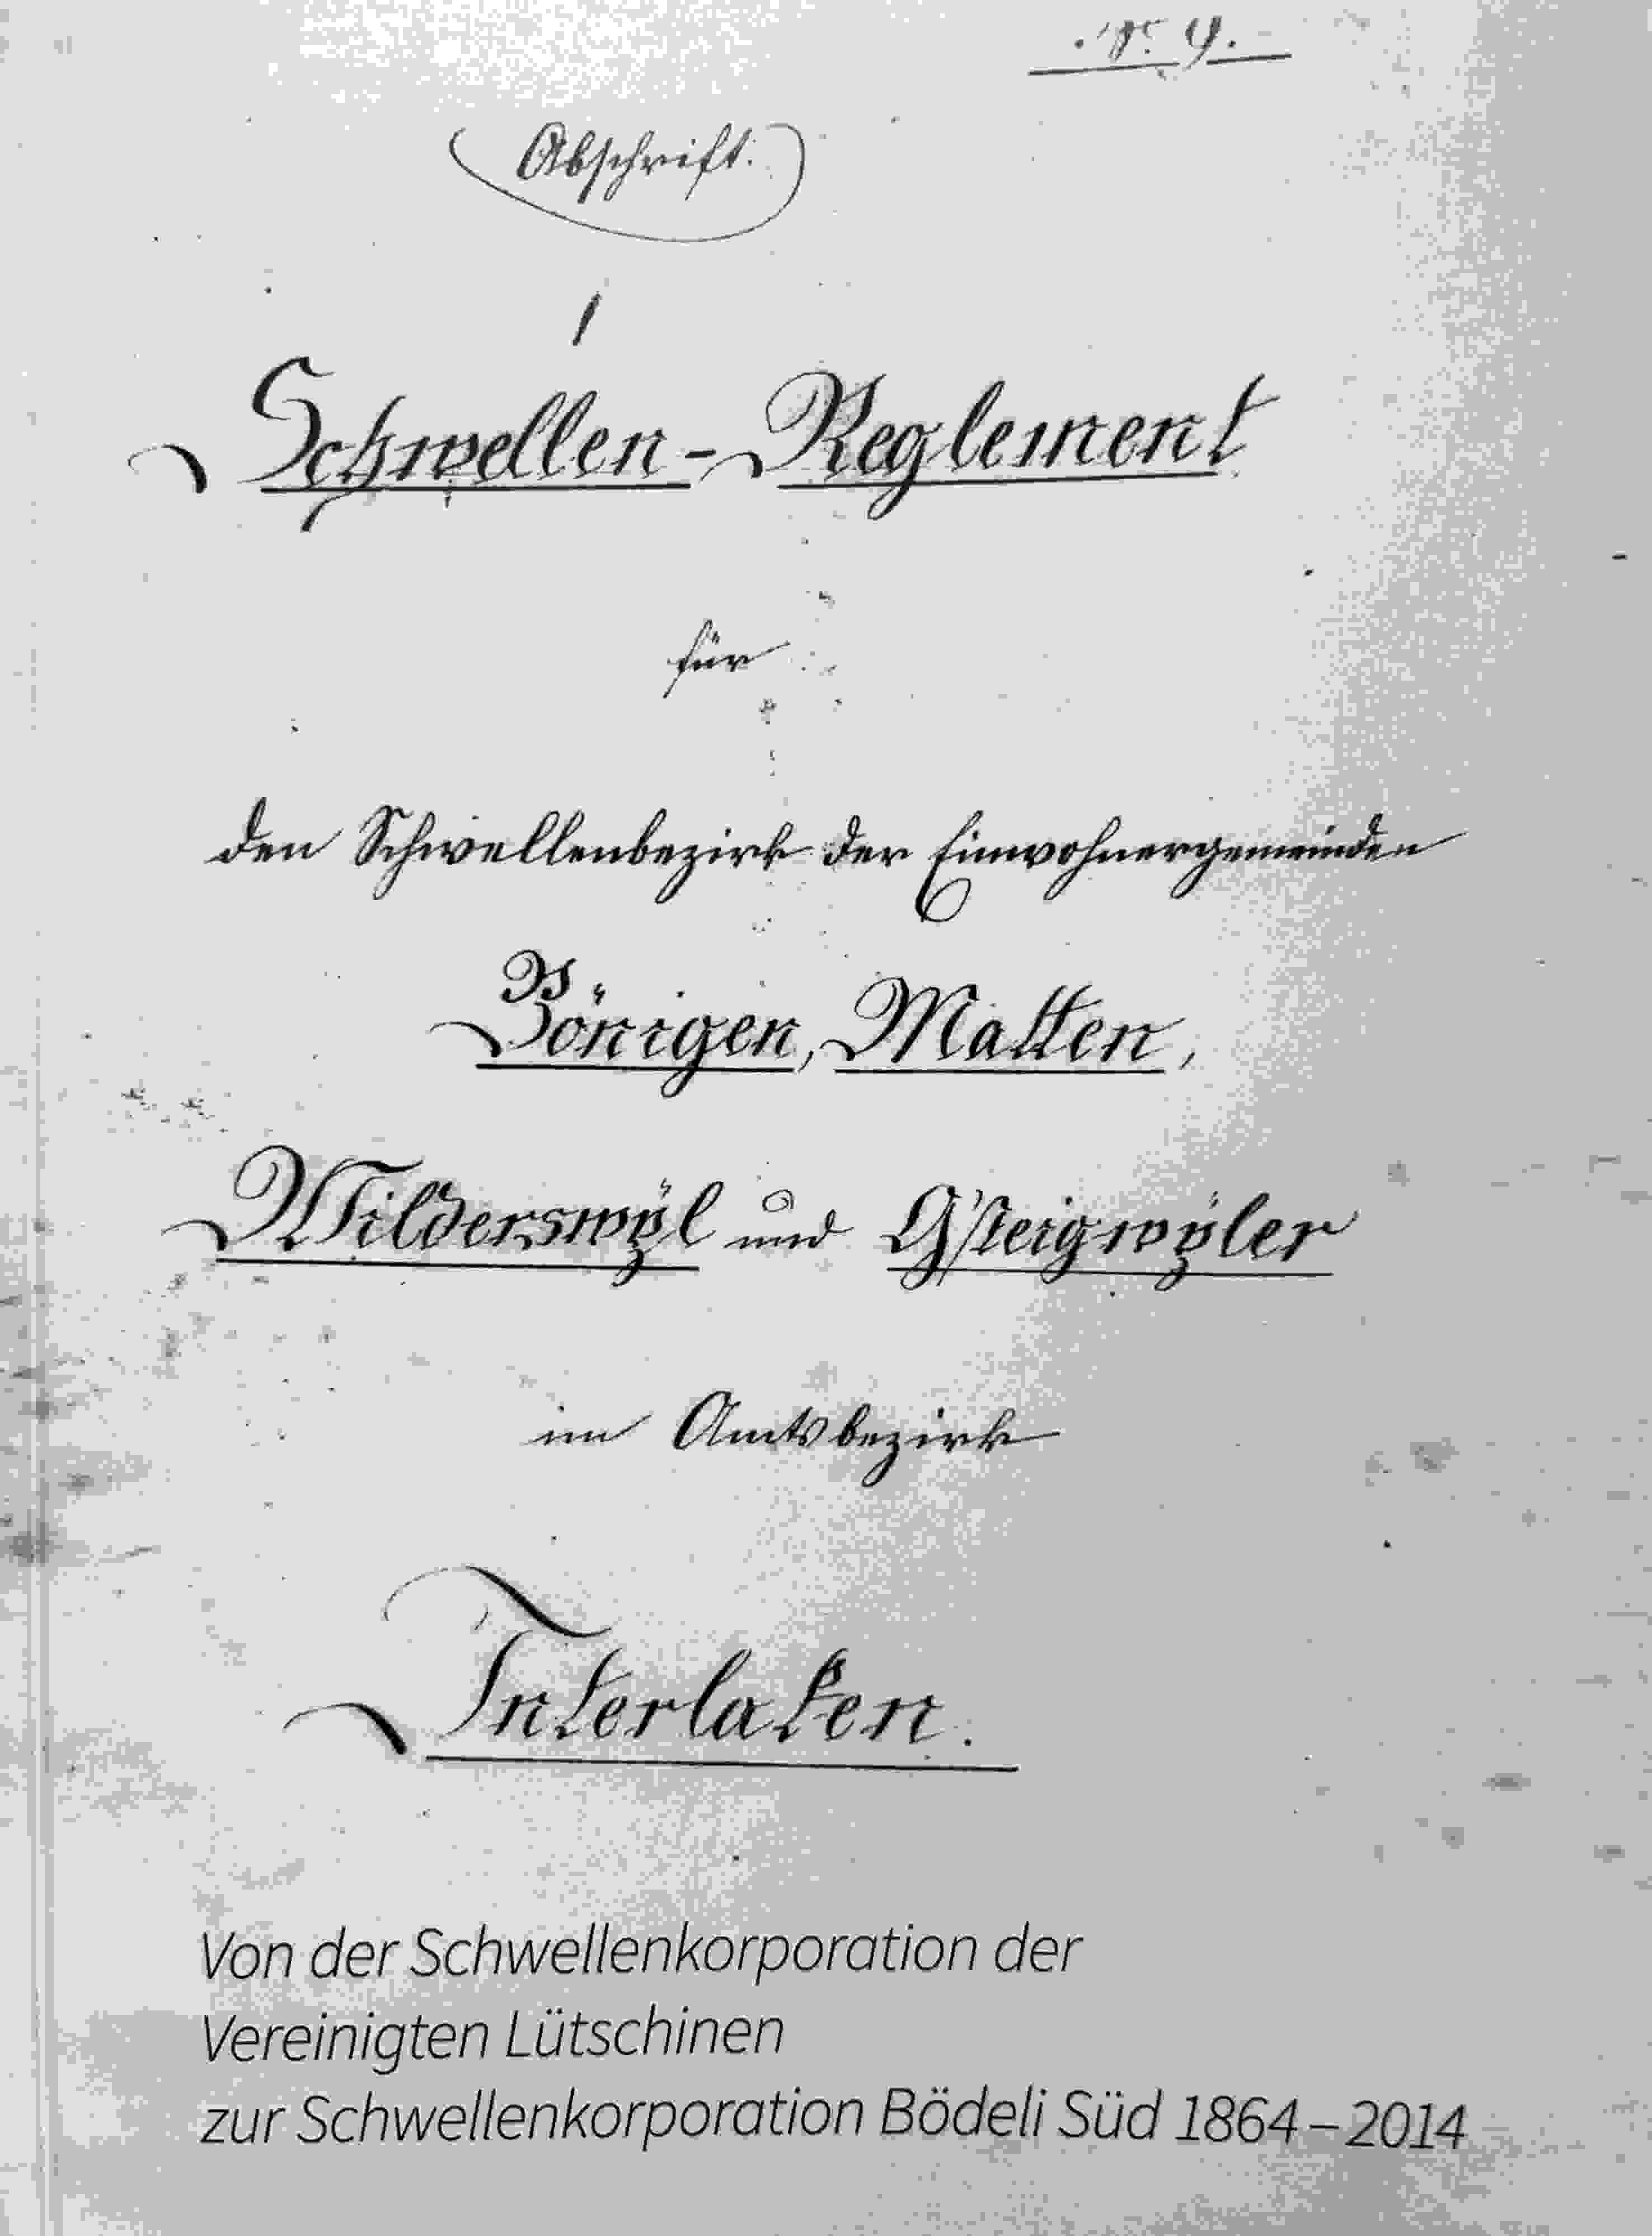 Abschrift.
Schwellen-Reglement
für
den Schwellenbezirk der Einwohnergemeinden
Bönigen, Matten,
Wilderswÿl und G'steigwÿler
im Amtsbezirk
Interlaken.
Von der Schwellenkorporation der
Vereinigten Lütschinen
zur Schwellenkorporation Bödeli Süd 1864–2014